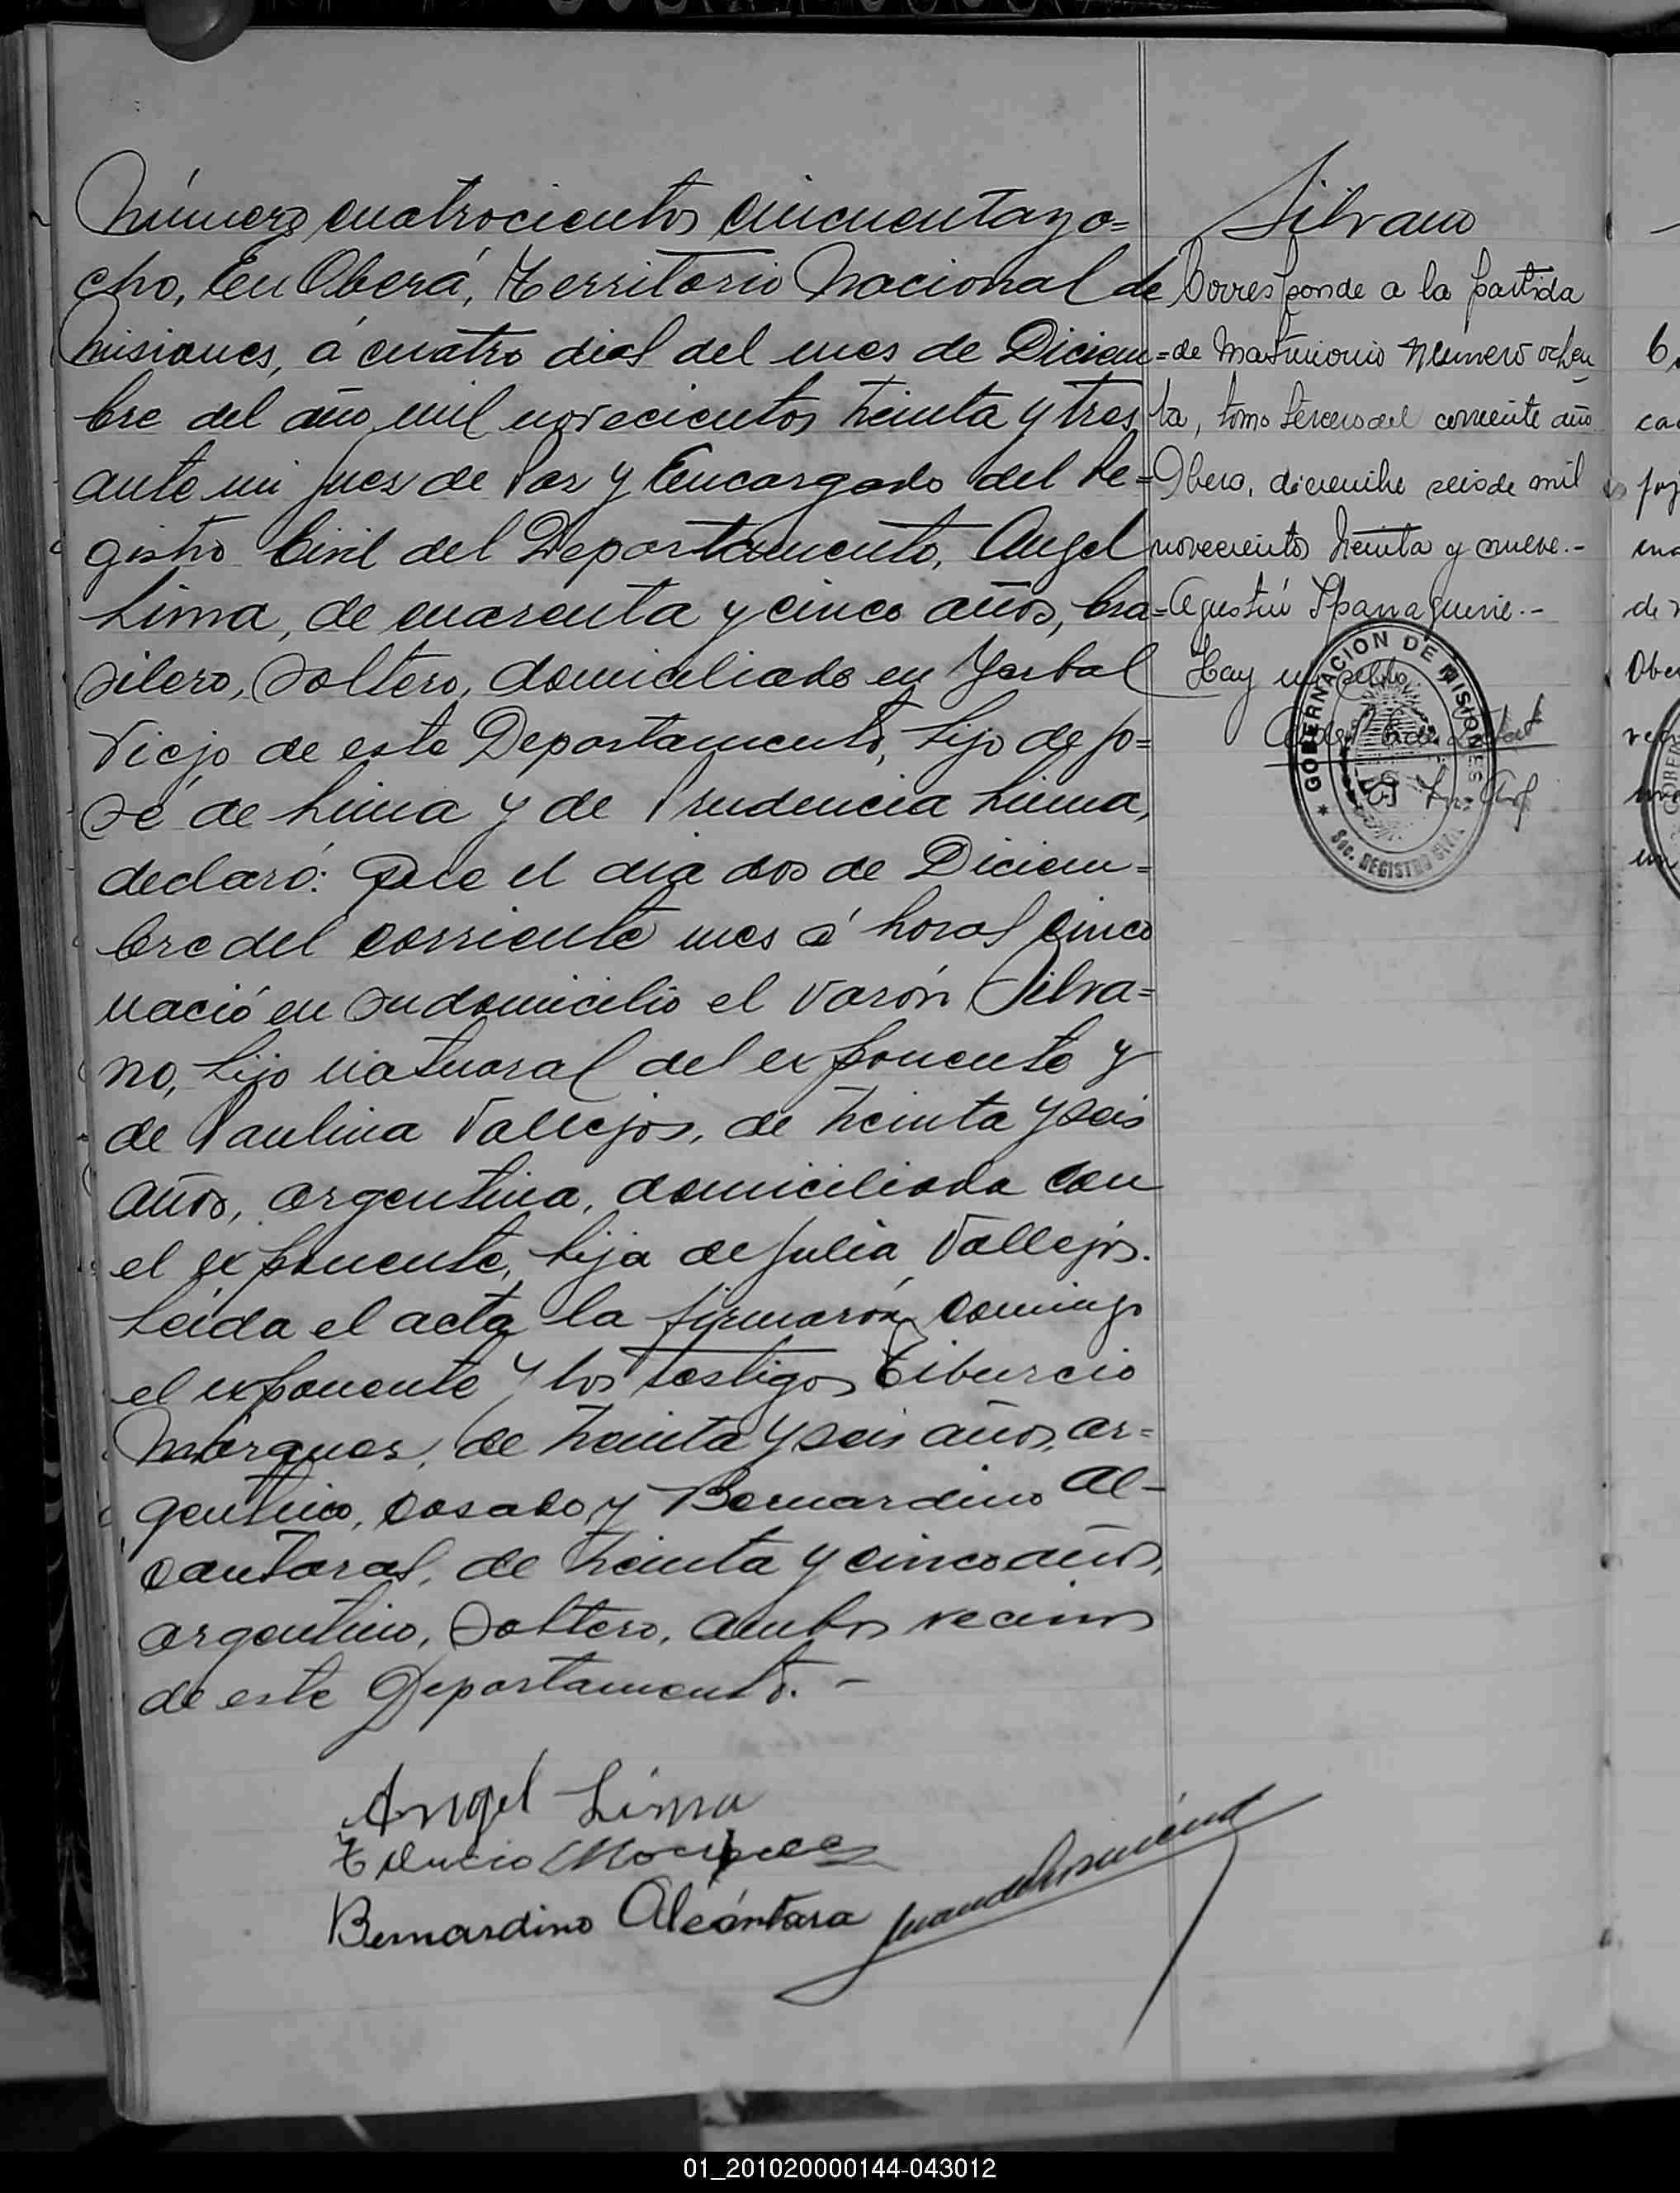 Número cuatrocientos cincuenta y o=
cho, En Oberá, Territorio Nacional de
Misiones, á cuatro dias del mes de Diciem=
bre del año mil novecientos treinta y tres
ante mi Juez de Paz y Encargado del Re=
gistro Civil del Departamento, Angel
Lima, de cuarenta y cinco años, bra=
silero, soltero, domiciliado en Yerbal
Viejo de este Departamento, hijo de Jo=
sé de Lima y de Prudencia Lima,
declaró: Que el dia dos de Diciem=
bre del corriente mes á horas cinco
nació en su domicilio el varón Silva=
no, hijo natural del exponente y
de Paulina Vallejos, de treinta y seis
años, argentina, domiciliada con
el exponente, hija de Julia Vallejos.
Leida el acta la firmarón conmigo
el exponente y los testigos Tiburcio
Marques, de treinta y seis años, ar=
gentino, casado y Bernardino Al-
cantaras, de treinta y cinco años,
argentino, soltero, ambos vecinos
de este Departamento. -
Angel Lima
Tiburcio Marques
Bernardino Alcántara
Silvano
Corresponde a la partida
de matrimonio número ochen
ta, tomo tercero del corriente año
Oberá, diciembre seis de mil
novecientos treinta y nueve.-
Agustín
Hay un sello
GOBERNACION DE MISIONES
SEC. REGISTRO CIVIL
01_201020000144-043012